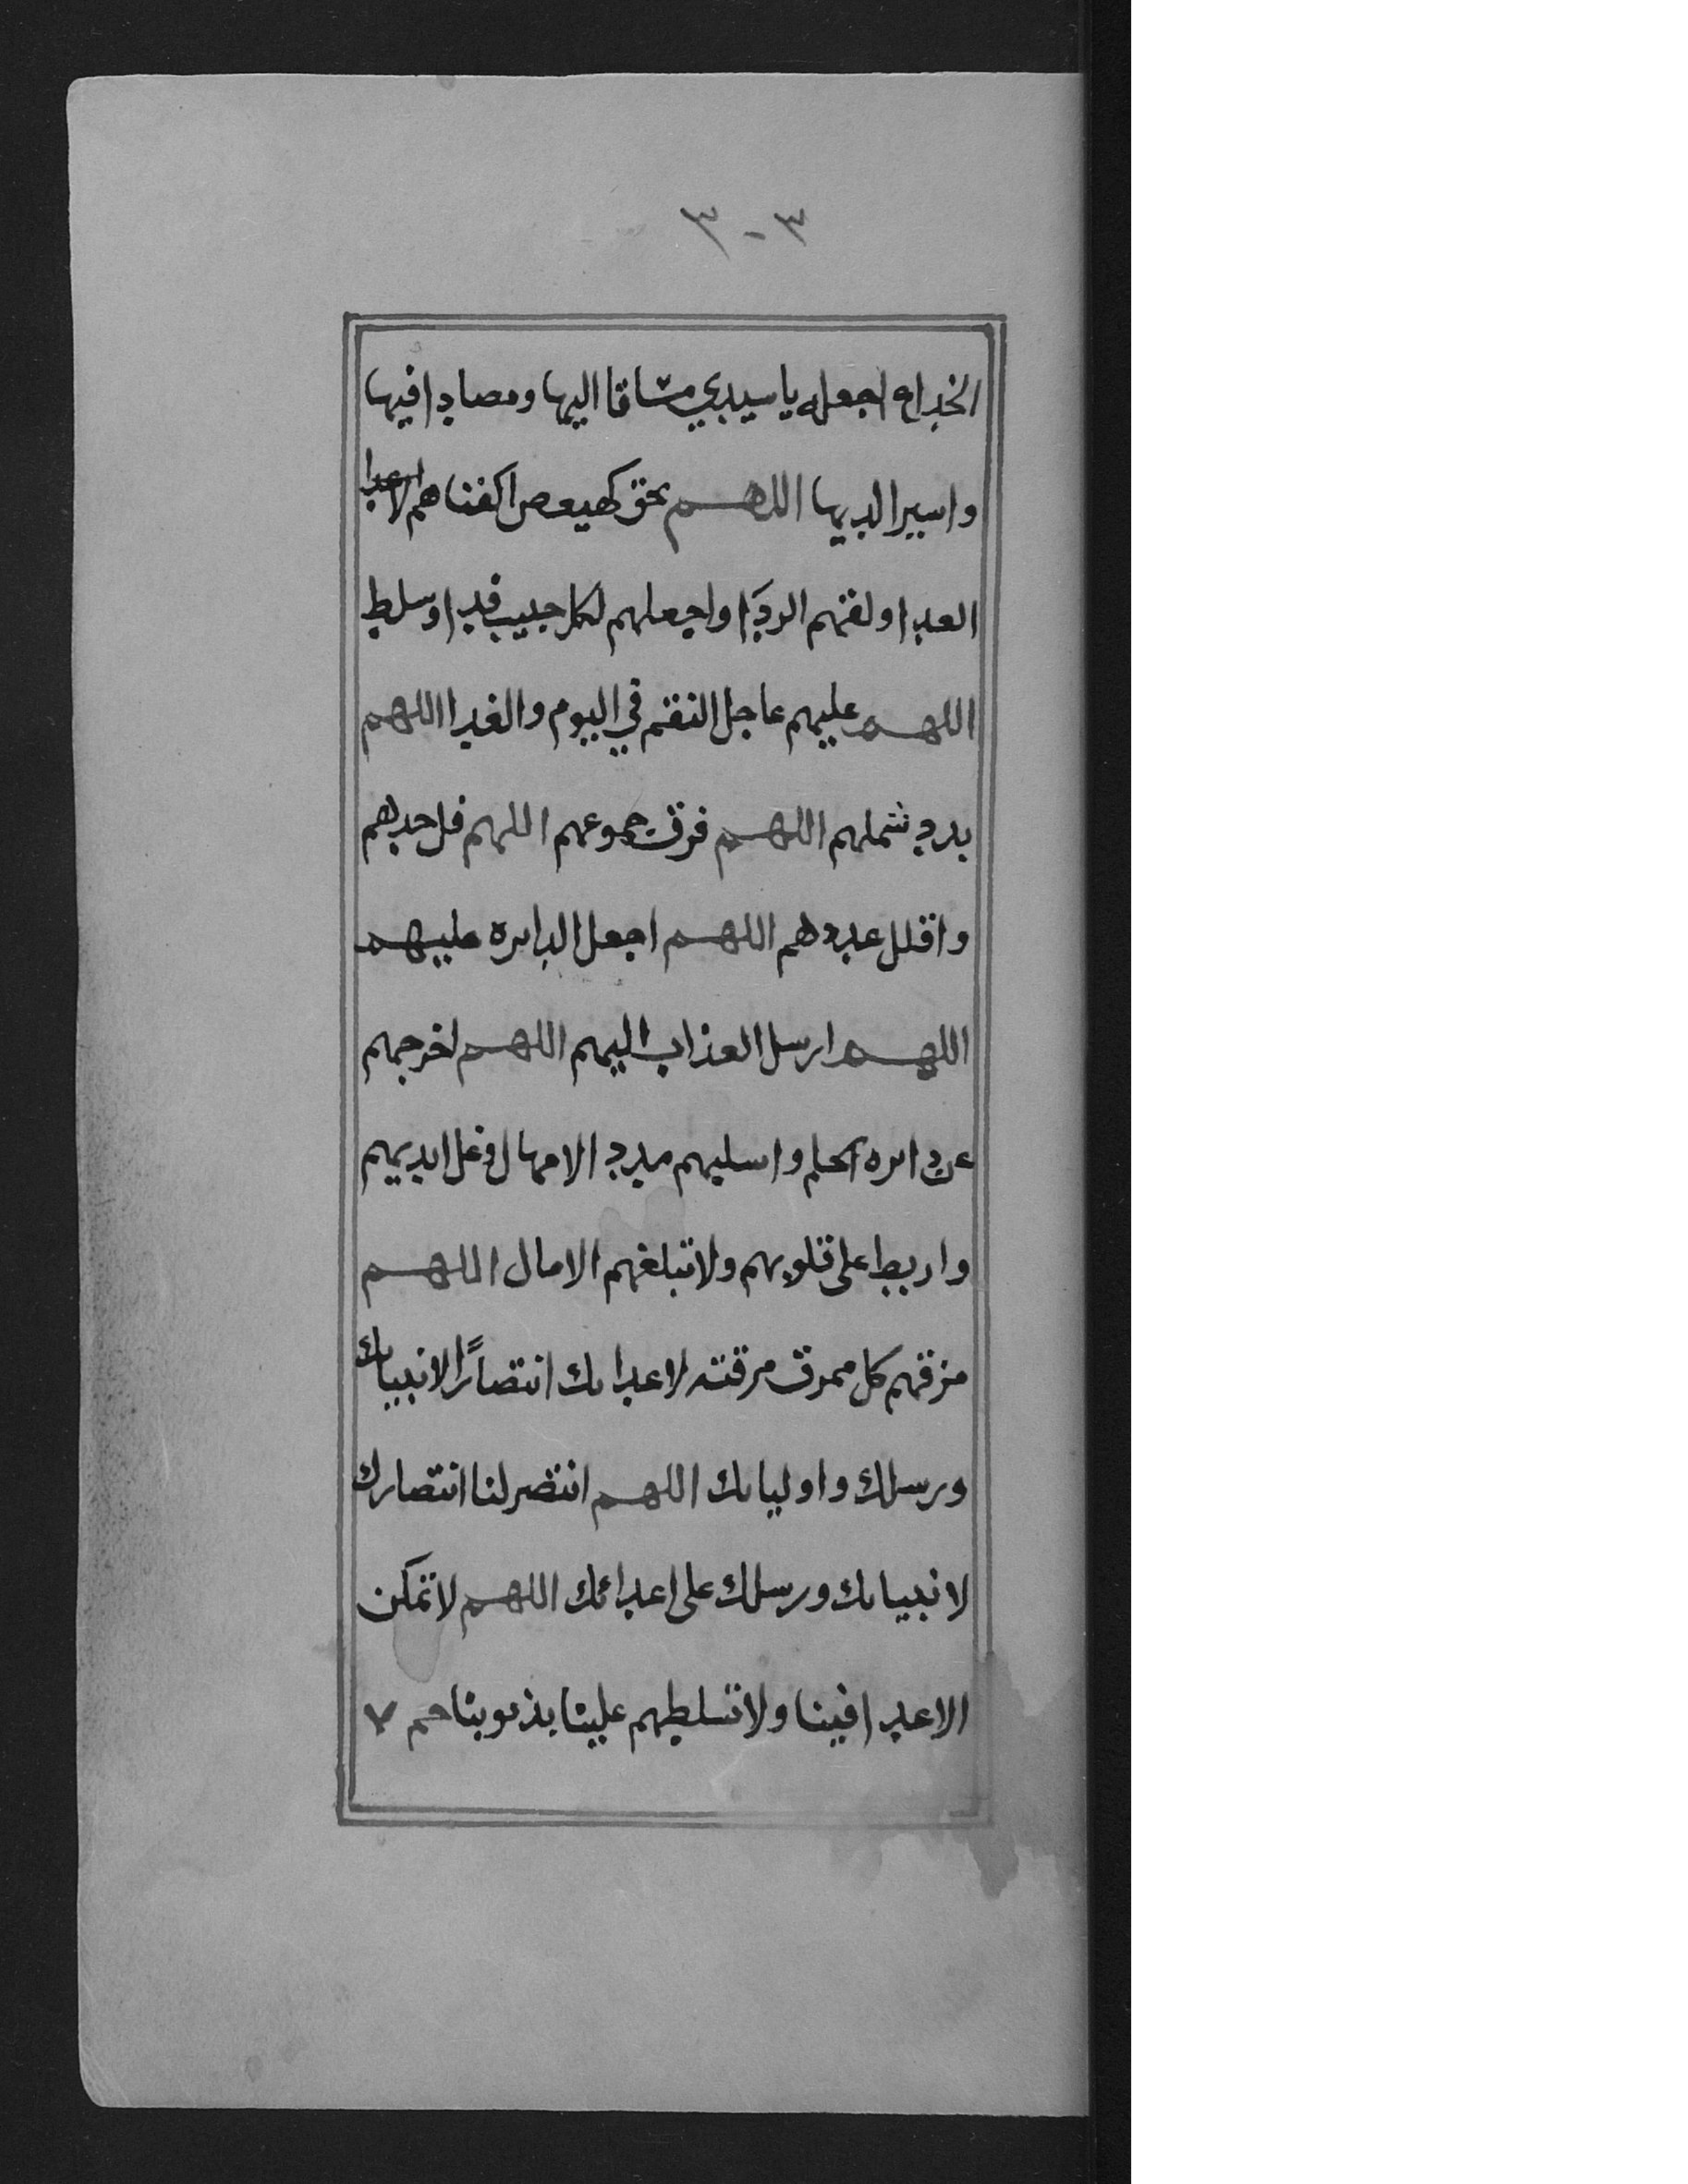 ٣-٣
الخداع اجعله يا سيدي مشاقا اليها ومصادا فيها
واسيرا لديها اللهم بحق كهيعص اكفنا هم الاعدا
العدا ولقهم الردا واجعلهم لكل حبيب فدا وسلط
اللهم عليهم عاجل النقم في اليوم والغدا اللهم
بدد شملهم اللهم فرق جموعهم اللهم فل حدهم
واقلل عددهم اللهم اجعل الدايره عليهم
اللهم ارسل العذاب اليهم اللهم اخرجهم
عن دايره الحلم واسلبهم مدد الامهال وغل ايديهم
واربط على قلوبهم ولا تبلغهم الامال اللهم
مزقهم كل ممزق مزقته لاعدايك انتصارًا لانبيايك
ورسلك واوليايك اللهم انتصر لنا انتصارك
لانبيايك ورسلك على اعدائك اللهم لا تمكن
الاعدا فينا ولا تسلطهم علينا بذنوبنا حم ٧